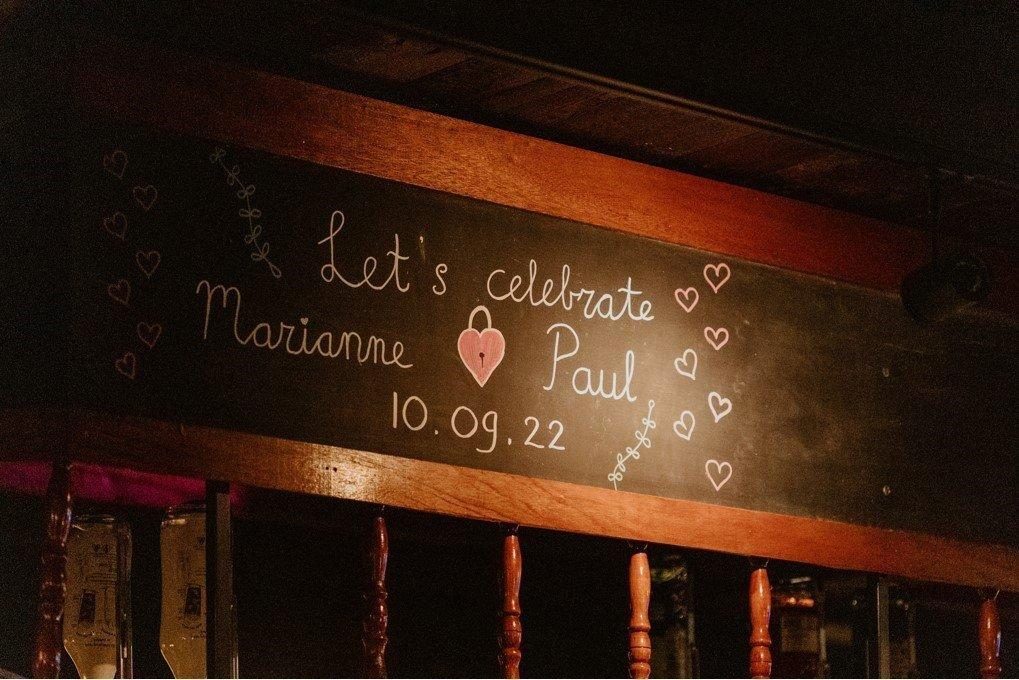 Let's celebrate
Marianne Paul
10.09.22